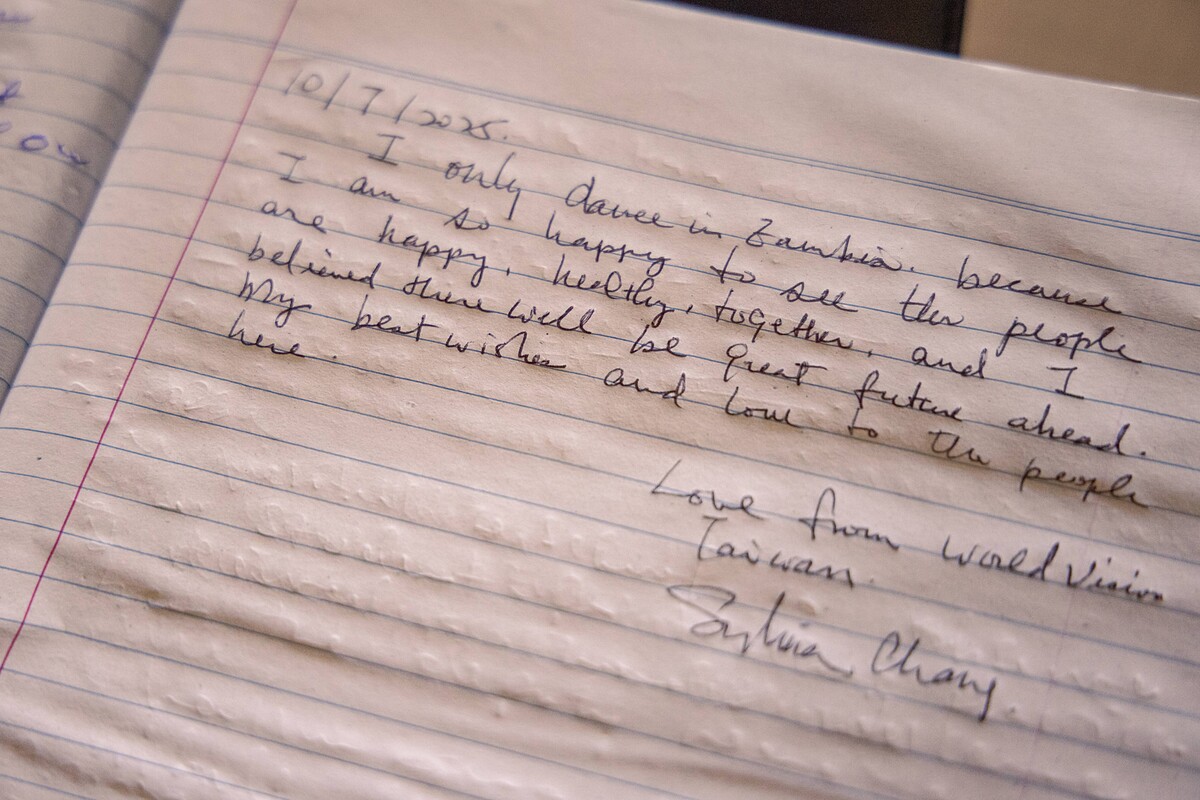 10/7/2025.
I only dance in Zambia. because
I am so happy to see the people
are happy, healthy, together, and I
believed there will be great future ahead.
My best wishes and love to the people
here.
Love from World Vision
Taiwan.
Sylvia Chang.